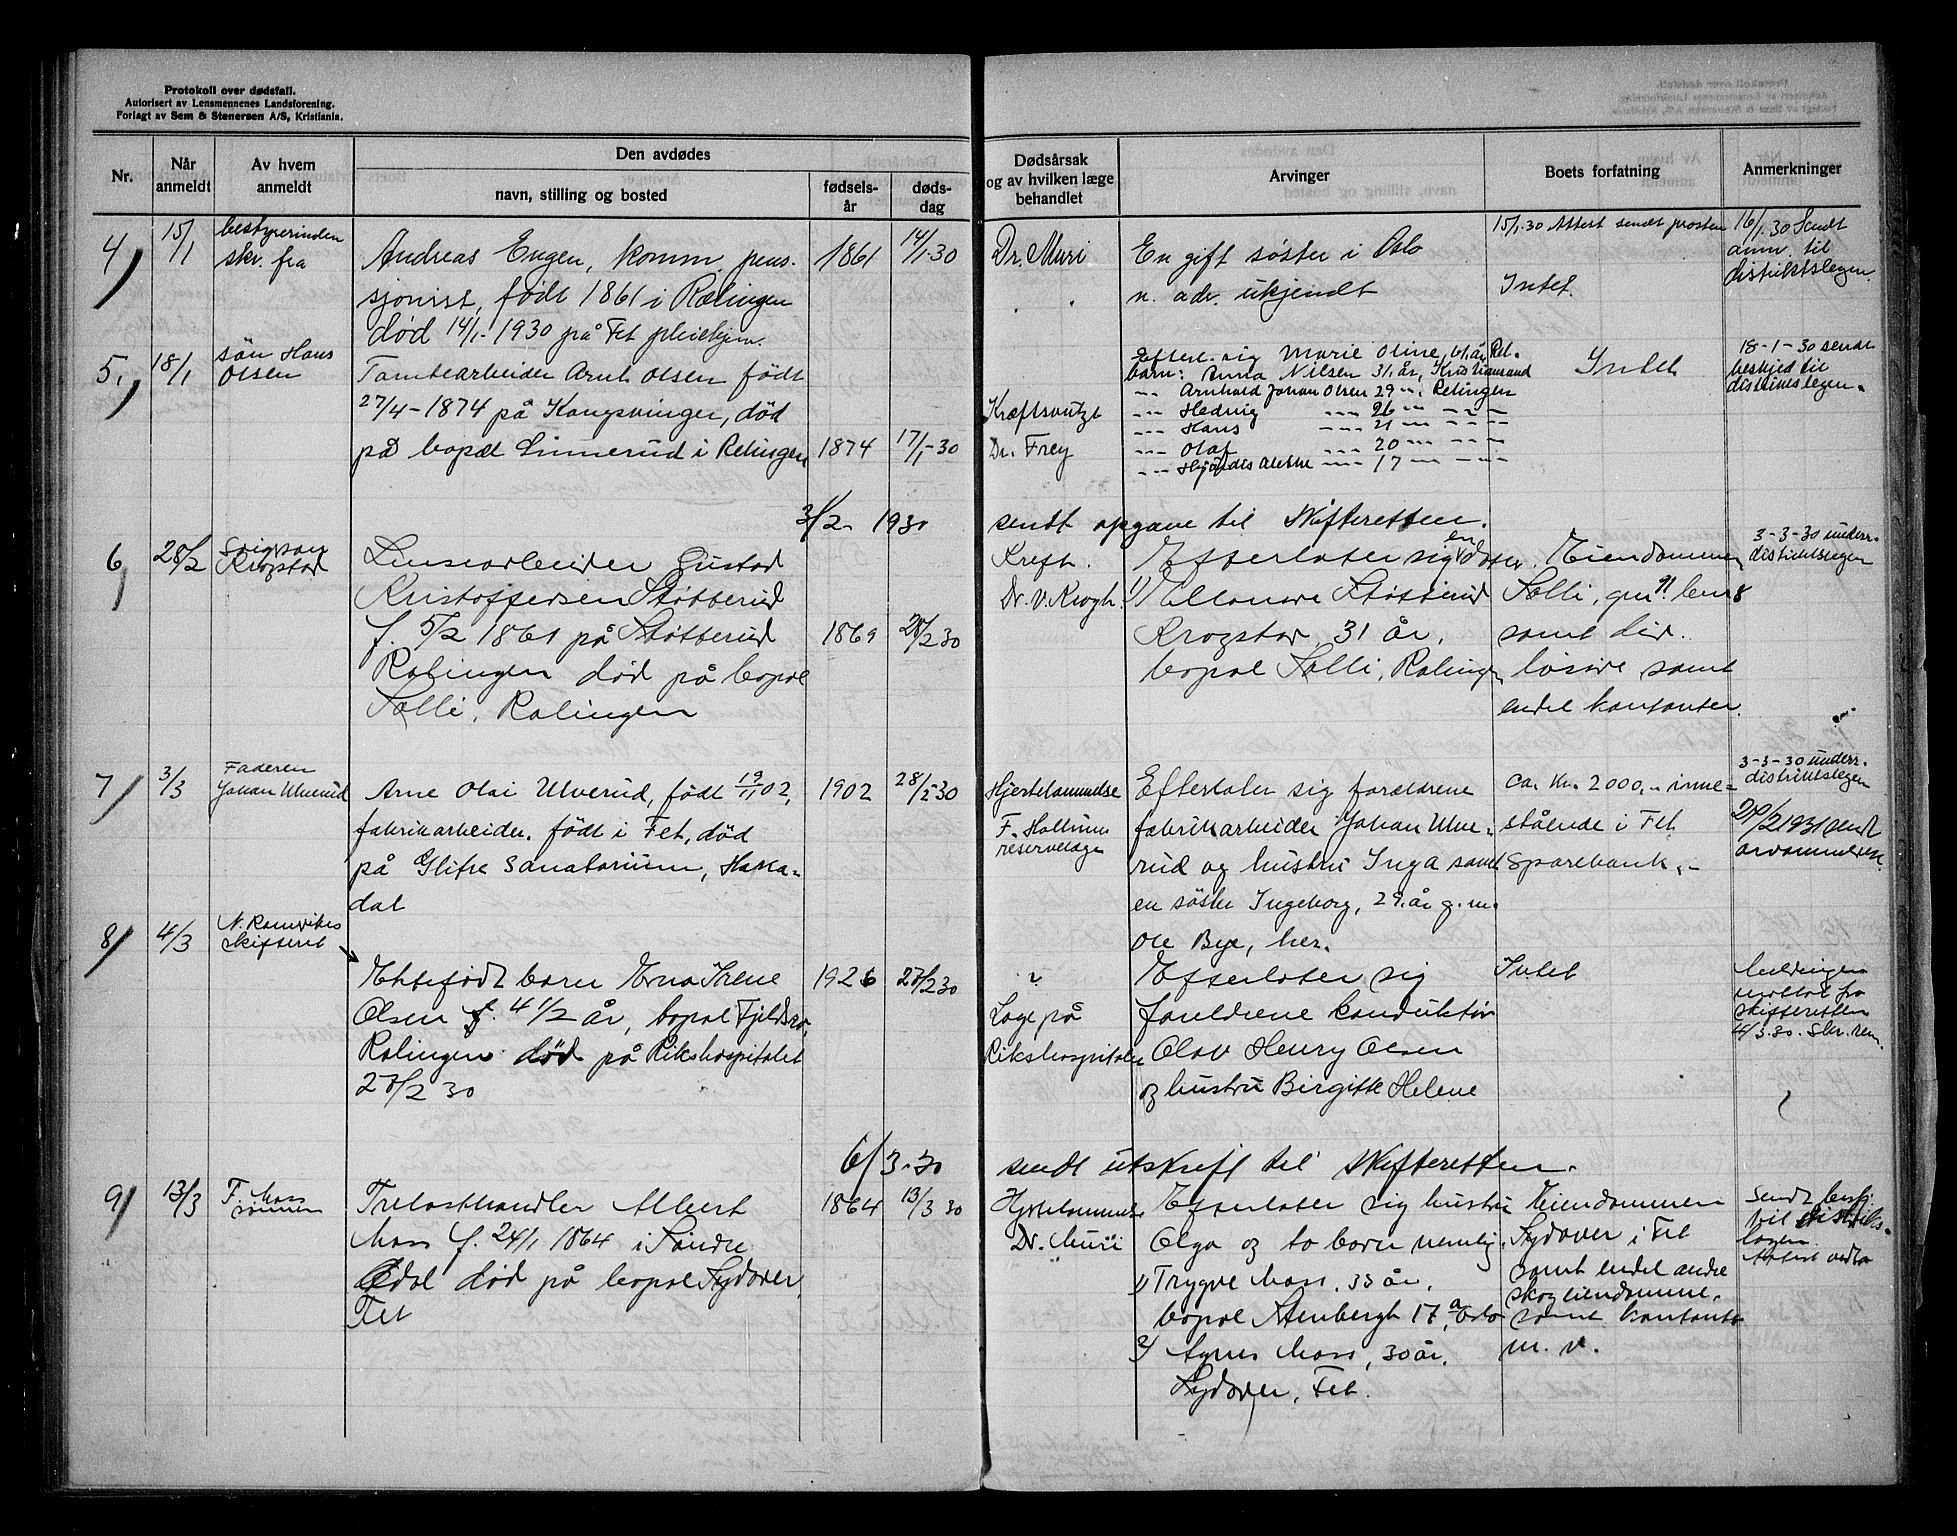 Protokoll over dødsfall.
Autorisert av Lensmennenes Landsforening.
Forlagt av Sem & Stenersen A/S, Kristiania.
Nr.
Når anmeldt
Av hvem anmeldt
Den avdødes
navn, stilling og bosted
fødsels-år
døds-dag
Dødsårsak og av hvilken læge behandlet
Arvinger
Boets forfatning
Anmerkninger
4/
15/1
bestyrerinden
skr. fra
Andreas Engen, komm. pens-
sjonist, født 1861 i Rælingen
død 14/1-1930 på Fet pleiehjem.
1861
14/1-30
Dr. Muri
En gift søster i Oslo
n. adr. ukjendt
15/1-30 Attest sendt prosten
Intet.
16/1.30 Sendt
anm. til
distriktslegen
5,
18/1
sön Hans
Olsen
Tomtearbeider Arnt Olsen født
27/4-1874 på Kongsvinger, død
på bopæl Linnerud i Relingen
1874
17/1-30
Kræftsvulst
Dr. Frey
Efterl. sig Marie Oline, 61 år, Rel.
barn: Anna Nilsen 31 år, Kristiansand
--- Arnhold Johan Olsen 29 -"-, Relingen
--- Hedvig --- 26 -"- ---
--- Hans --- 21 -"- ---
--- Olaf --- 20 -"- ---
--- Hjördis Alethe --- 17 -"- ---
Intet
18-1-30 sendt
beskjed til
distriktslegen.
3/2. 1930 sendt opgave til Skifteretten.
6,
28/2
Krogstad
Linjearbeider Gustav
Kristoffersen Støtterud
f. 5/2 1861 på Støtterud
Rælingen død på bopæl
Solli, Rælingen
1869
28/2 30
Kreft.
Dr. v. Krogh.
Efterlater sig en dater.
1) Ellanore Støtterud
Krogstad, 31 år,
bopæl Solli, Rælingen
Eiendommen
Solli, gnr 91. bnr 8
samt div.
løsøre samt
endel kontanter.
3-3-30 underr.
distriktslegen
7/
3/3
Faderen
Johan Ulverud
Arne Olai Ulverud, født 19/11 02,
fabrikarbeider, født i Fet, død
på Glitre Sanatorium, Haka-
dal
1902
28/2-30
Hjertelammelse
reservelæge
Efterlater sig forældrene
fabrikarbeider Johan Ulve-
rud og hustru Inga samt
en søster Ingeborg, 29 år g.m.
Ole Bye, her.
ca. kr. 2000,- inne-
stående i Fet
Sparebank,-
3-3-30 underr.
distriktslegen
2/2 1931 sendt
arvanmeldelse
8/
4/3
skifteret
Ektefødt barn Erna Irene
Olsen f. 4 1/2 år, bopæl Fjeldsro,
Rælingen død på Rikshospitalet
27/2 30
1926
27/2 30
?
Læge på
Rikshospitalet
Efterlater sig
foreldrene konduktør
Olav Henry Olsen
og hustru Birgitte Helene
Intet
Meldingen
mottat fra
skifteretten
4/3.30.
6/3-30 sendt utskrift til Skifteretten.
9/
13/3
F. Moss
sønnen
Trelasthandler Albert
Moss f. 24/1 1864 i Søndre
Odal død på bopæl Sydover,
Fet
1864
13/3 30
Hjertelammelse
Dr. Muri
Efterlater sig hustru
Olga og to barn nemlig.
1) Trygve Moss, 33 år,
bopæl Stenbergt 17 a, Oslo
2) Agnes Moss, 30 år,
Sydover, Fet.
Eiendommen
Sydover i Fet
samt endel andre
skogeiendomme,
samt kontanter
m. v.
Sendt besk.
til distrikts-
lægen
Attest vedla